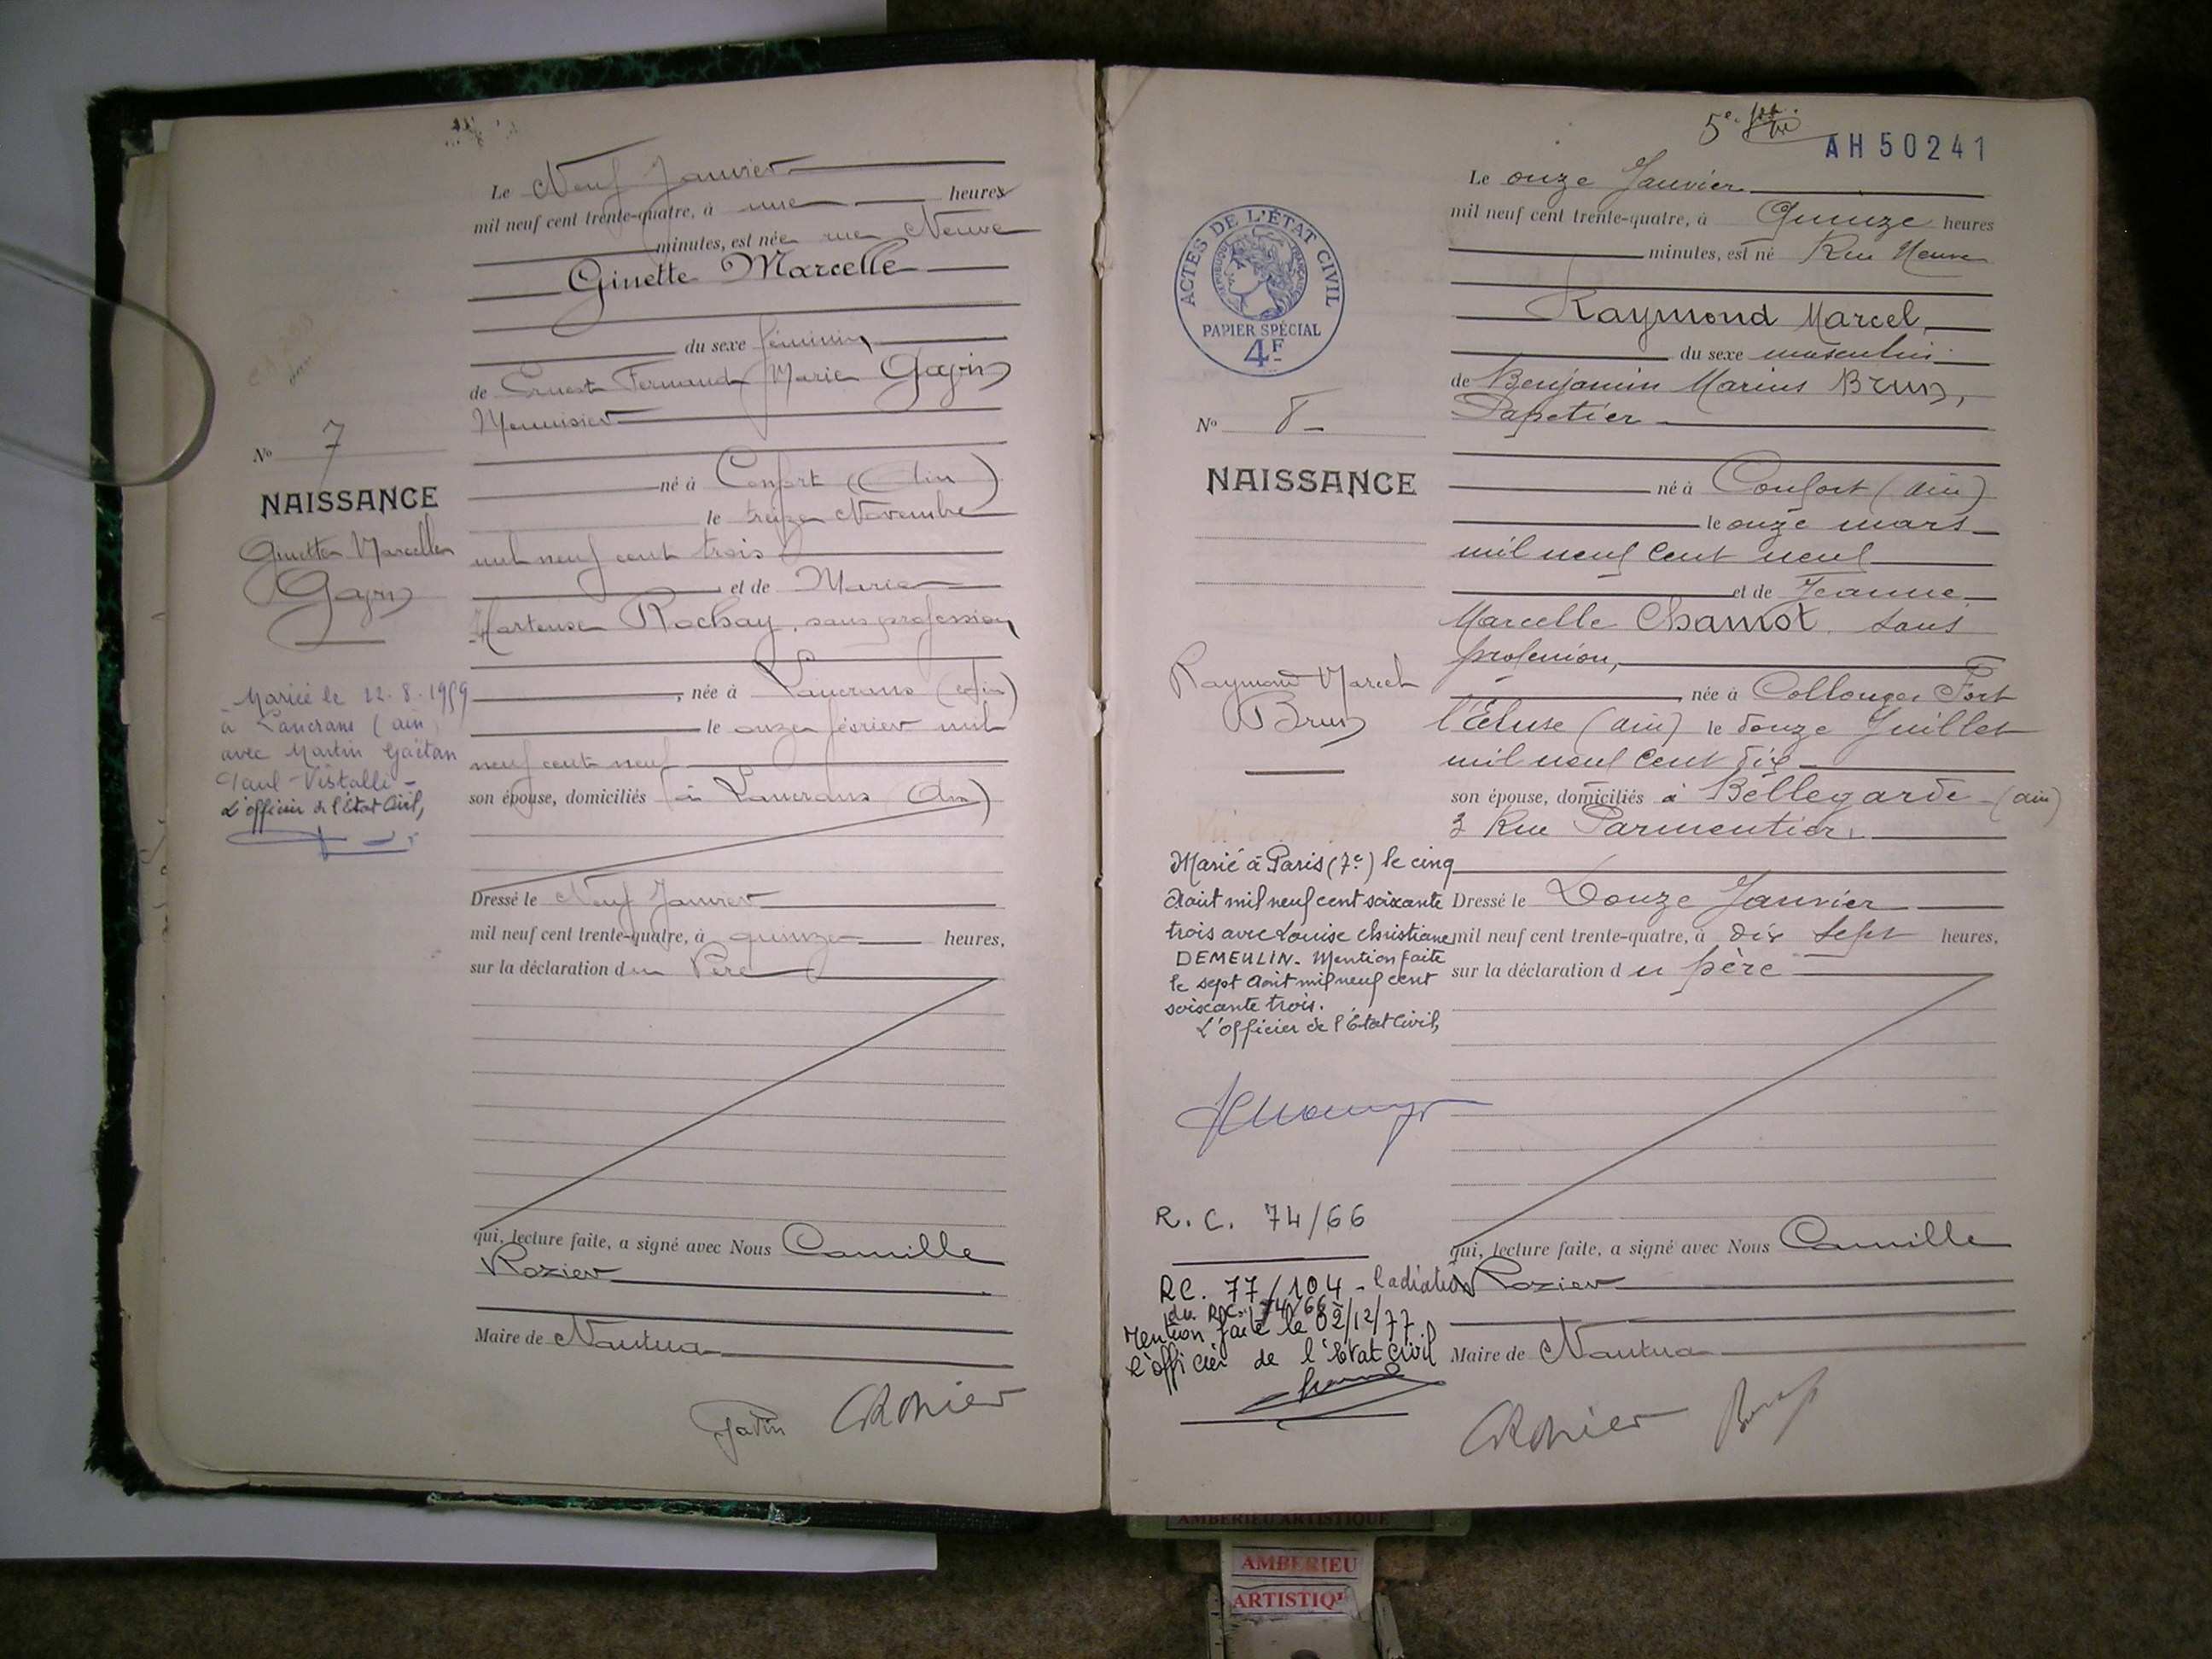 Le Neuf Janvier
mil neuf cent trente-quatre, à une heures
minutes, est née rue Neuve
Ginette Marcelle
du sexe féminin
de Ernest Fernand Marie
Menuisier
né à Confort (Ain)
le treize Novembre
mil neuf cent trois
et de Marie
Hortense Rochay, sans profession
, née à Lancrans (Ain)
le onze février mil
neuf cent neuf
son épouse, domiciliés à Lancrans (Ain)
Dressé le Neuf Janvier
mil neuf cent trente-quatre, à quinze heures,
sur la déclaration du Père
qui, lecture faite, a signé avec Nous Camille
Rozier
Maire de Nantua
CRozier
No 7
NAISSANCE
Ginette Marcelle
Mariée le 12.8.1959
à Lancrans (ain)
avec Martin Gaëtan
Paul Vistalli -
L'officier de l'État Civil,
5e
AH 50241
ACTES DE L'ÉTAT CIVIL
RÉPUBLIQUE FRANÇAISE
PAPIER SPÉCIAL
4F
No 8
NAISSANCE
Raymond Marcel
Brun
Marié à Paris (7e) le cinq
Août mil neuf cent soixante
trois avec Louise Christiane
DEMEULIN. Mention faite
le sept Août mil neuf cent
soixante trois.
L'officier de l'État Civil,
R.C. 74/66
RC. 77/104 - Radiation
du RC. 74/66
Mention faite le 02/12/77
L'officier de l'État Civil
Le onze Janvier
mil neuf cent trente-quatre, à Quinze heures
minutes, est né Rue Neuve
Raymond Marcel,
du sexe masculin
de Benjamin Marius Brun,
Papetier
né à Confort (ain)
le onze mars
mil neuf cent neuf
et de Jeanne
Marcelle Chamot sans
profession,
née à Collonges Fort
l'Ecluse (ain) le douze Juillet
mil neuf cent dix
son épouse, domiciliés à Bellegarde (ain)
3 Rue Parmentier.
Dressé le Douze Janvier
mil neuf cent trente-quatre, à dix sept heures,
sur la déclaration du père
qui, lecture faite, a signé avec Nous Camille
Rozier
Maire de Nantua
CRozier Brun
AMBERIEU ARTISTIQUE
AMBERIEU
ARTISTIQ